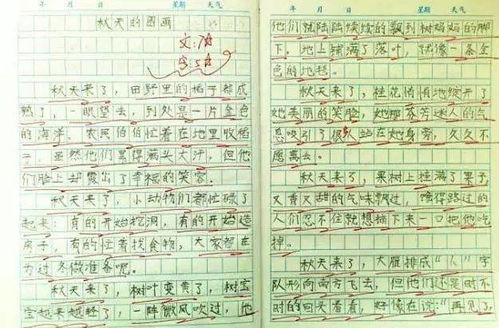 年 月 日 星期 天气
秋天的图画
文:7☆
字:5☆
秋天来了,田野里的稻子都成
熟了,一眼望去,到处是一片金色
的海洋。农民伯伯忙着在地里收稻
子,虽然他们累得满头大汗,但他
们脸上却露出了幸福的笑容。
秋天来了,小动物们都忙碌了
起来,有的开始挖洞,有的开始造
房子,有的忙着找食物,大家都在
为过冬做准备呢。
秋天来了,树叶变黄了,树宝
宝越来越轻了,一阵微风吹过,他
年 月 日 星期 天气
他们就陆陆续续的飘到树妈妈的脚
下。地上铺满了落叶,就像一条金
色的地毯。
秋天来了,桂花悄悄地绽开了
她美丽的笑脸,她那芬芳迷人的气
息吸引了很多人站在她身旁,久久不
愿离去。
秋天来了,果树上挂满了果子,
又香又甜的气味飘过,馋得路过的
人们忍不住就想摘下来一口把他吃
掉。
秋天来了,大雁排成“人”字
队形向南方飞去,但他们还是时不
时的回头看看,好像在说:“再见了,